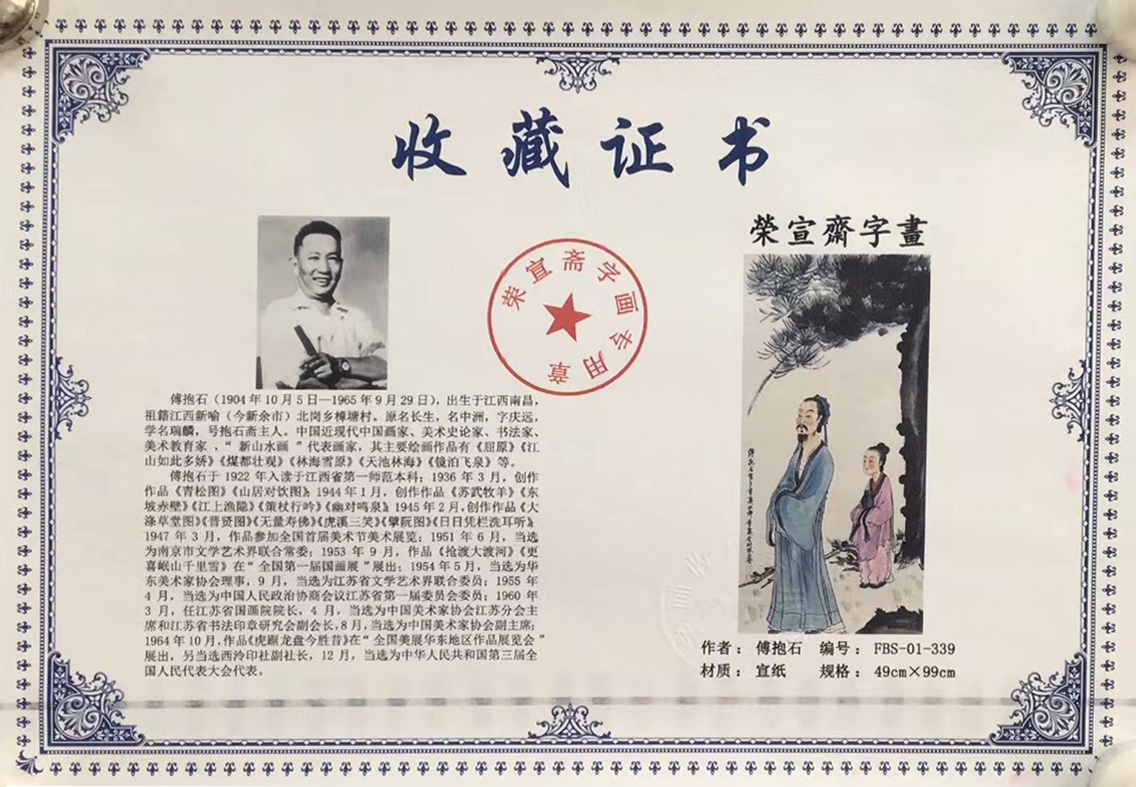 收藏证书
荣宣斋字画专用章
傅抱石（1904年10月5日—1965年9月29日），出生于江西南昌，
祖籍江西新喻（今新余市）北岗乡樟塘村。原名长生，名中洲，字庆远，
学名瑞麟，号抱石斋主人。中国近现代中国画家、美术史论家、书法家、
美术教育家，“新山水画”代表画家，其主要绘画作品有《屈原》《江
山如此多娇》《煤都壮观》《林海雪原》《天池林海》《镜泊飞泉》等。
傅抱石于1922年入读于江西省第一师范本科；1936年3月，创作
作品《青松图》《山居对饮图》；1944年1月，创作作品《苏武牧羊》《东
坡赤壁》《江上渔隐》《策杖行吟》《幽对鸣泉》；1945年2月，创作作品《大
涤草堂图》《晋贤图》《无量寿佛》《虎溪三笑》《擘阮图》《日日凭栏洗耳听》；
1947年3月，作品参加全国首届美术节美术展览；1951年6月，当选
为南京市文学艺术界联合常委；1953年9月，作品《抢渡大渡河》《更
喜岷山千里雪》在“全国第一届国画展”展出；1954年5月，当选为华
东美术家协会理事，9月，当选为江苏省文学艺术界联合委员；1955年
4月，当选为中国人民政治协商会议江苏省第一届委员会委员；1960年
3月，任江苏省国画院院长，4月，当选为中国美术家协会江苏分会主
席和江苏省书法印章研究会副会长，8月，当选为中国美术家协会副主席；
1964年10月，作品《虎踞龙盘今胜昔》在“全国美展华东地区作品展览会”
展出，另当选西泠印社副社长，12月，当选为中华人民共和国第三届全
国人民代表大会代表。
榮宣齋字畫
作者：傅抱石 编号：FBS-01-339
材质：宣纸 规格：49cm×99cm